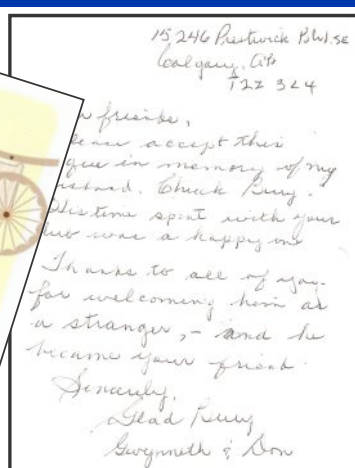 15,246 Prestwick Blvd. SE
Calgary, Alb
T2Z 3L4
friends,
accept this
que in memory of my
usband. Chuck
His time spent with your
was a happy one
Thanks to all of you.
for welcoming him as
a stranger, - and he
became your friend.
Sincerely,
Glad
Gwynneth & Don